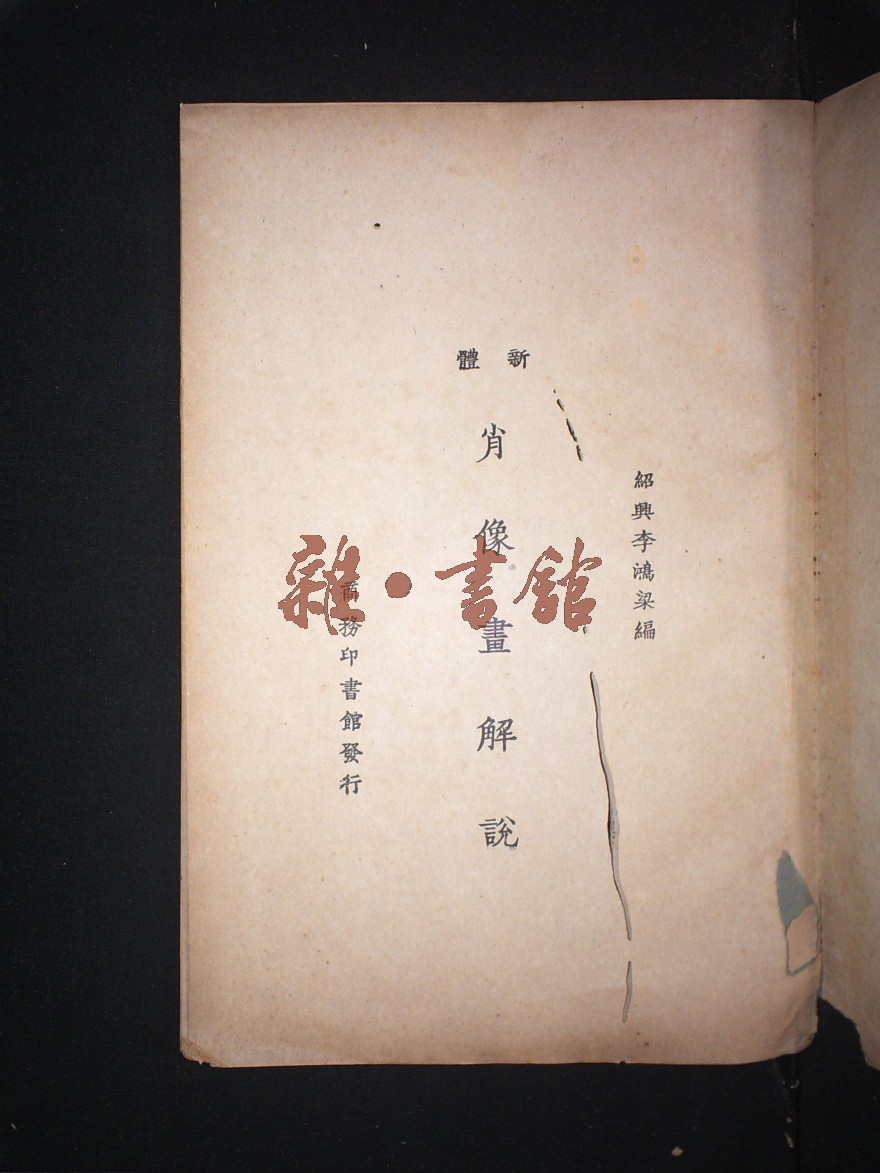 紹興李鴻梁編
新體
肖像畫解說
商務印書館發行
雜·書館